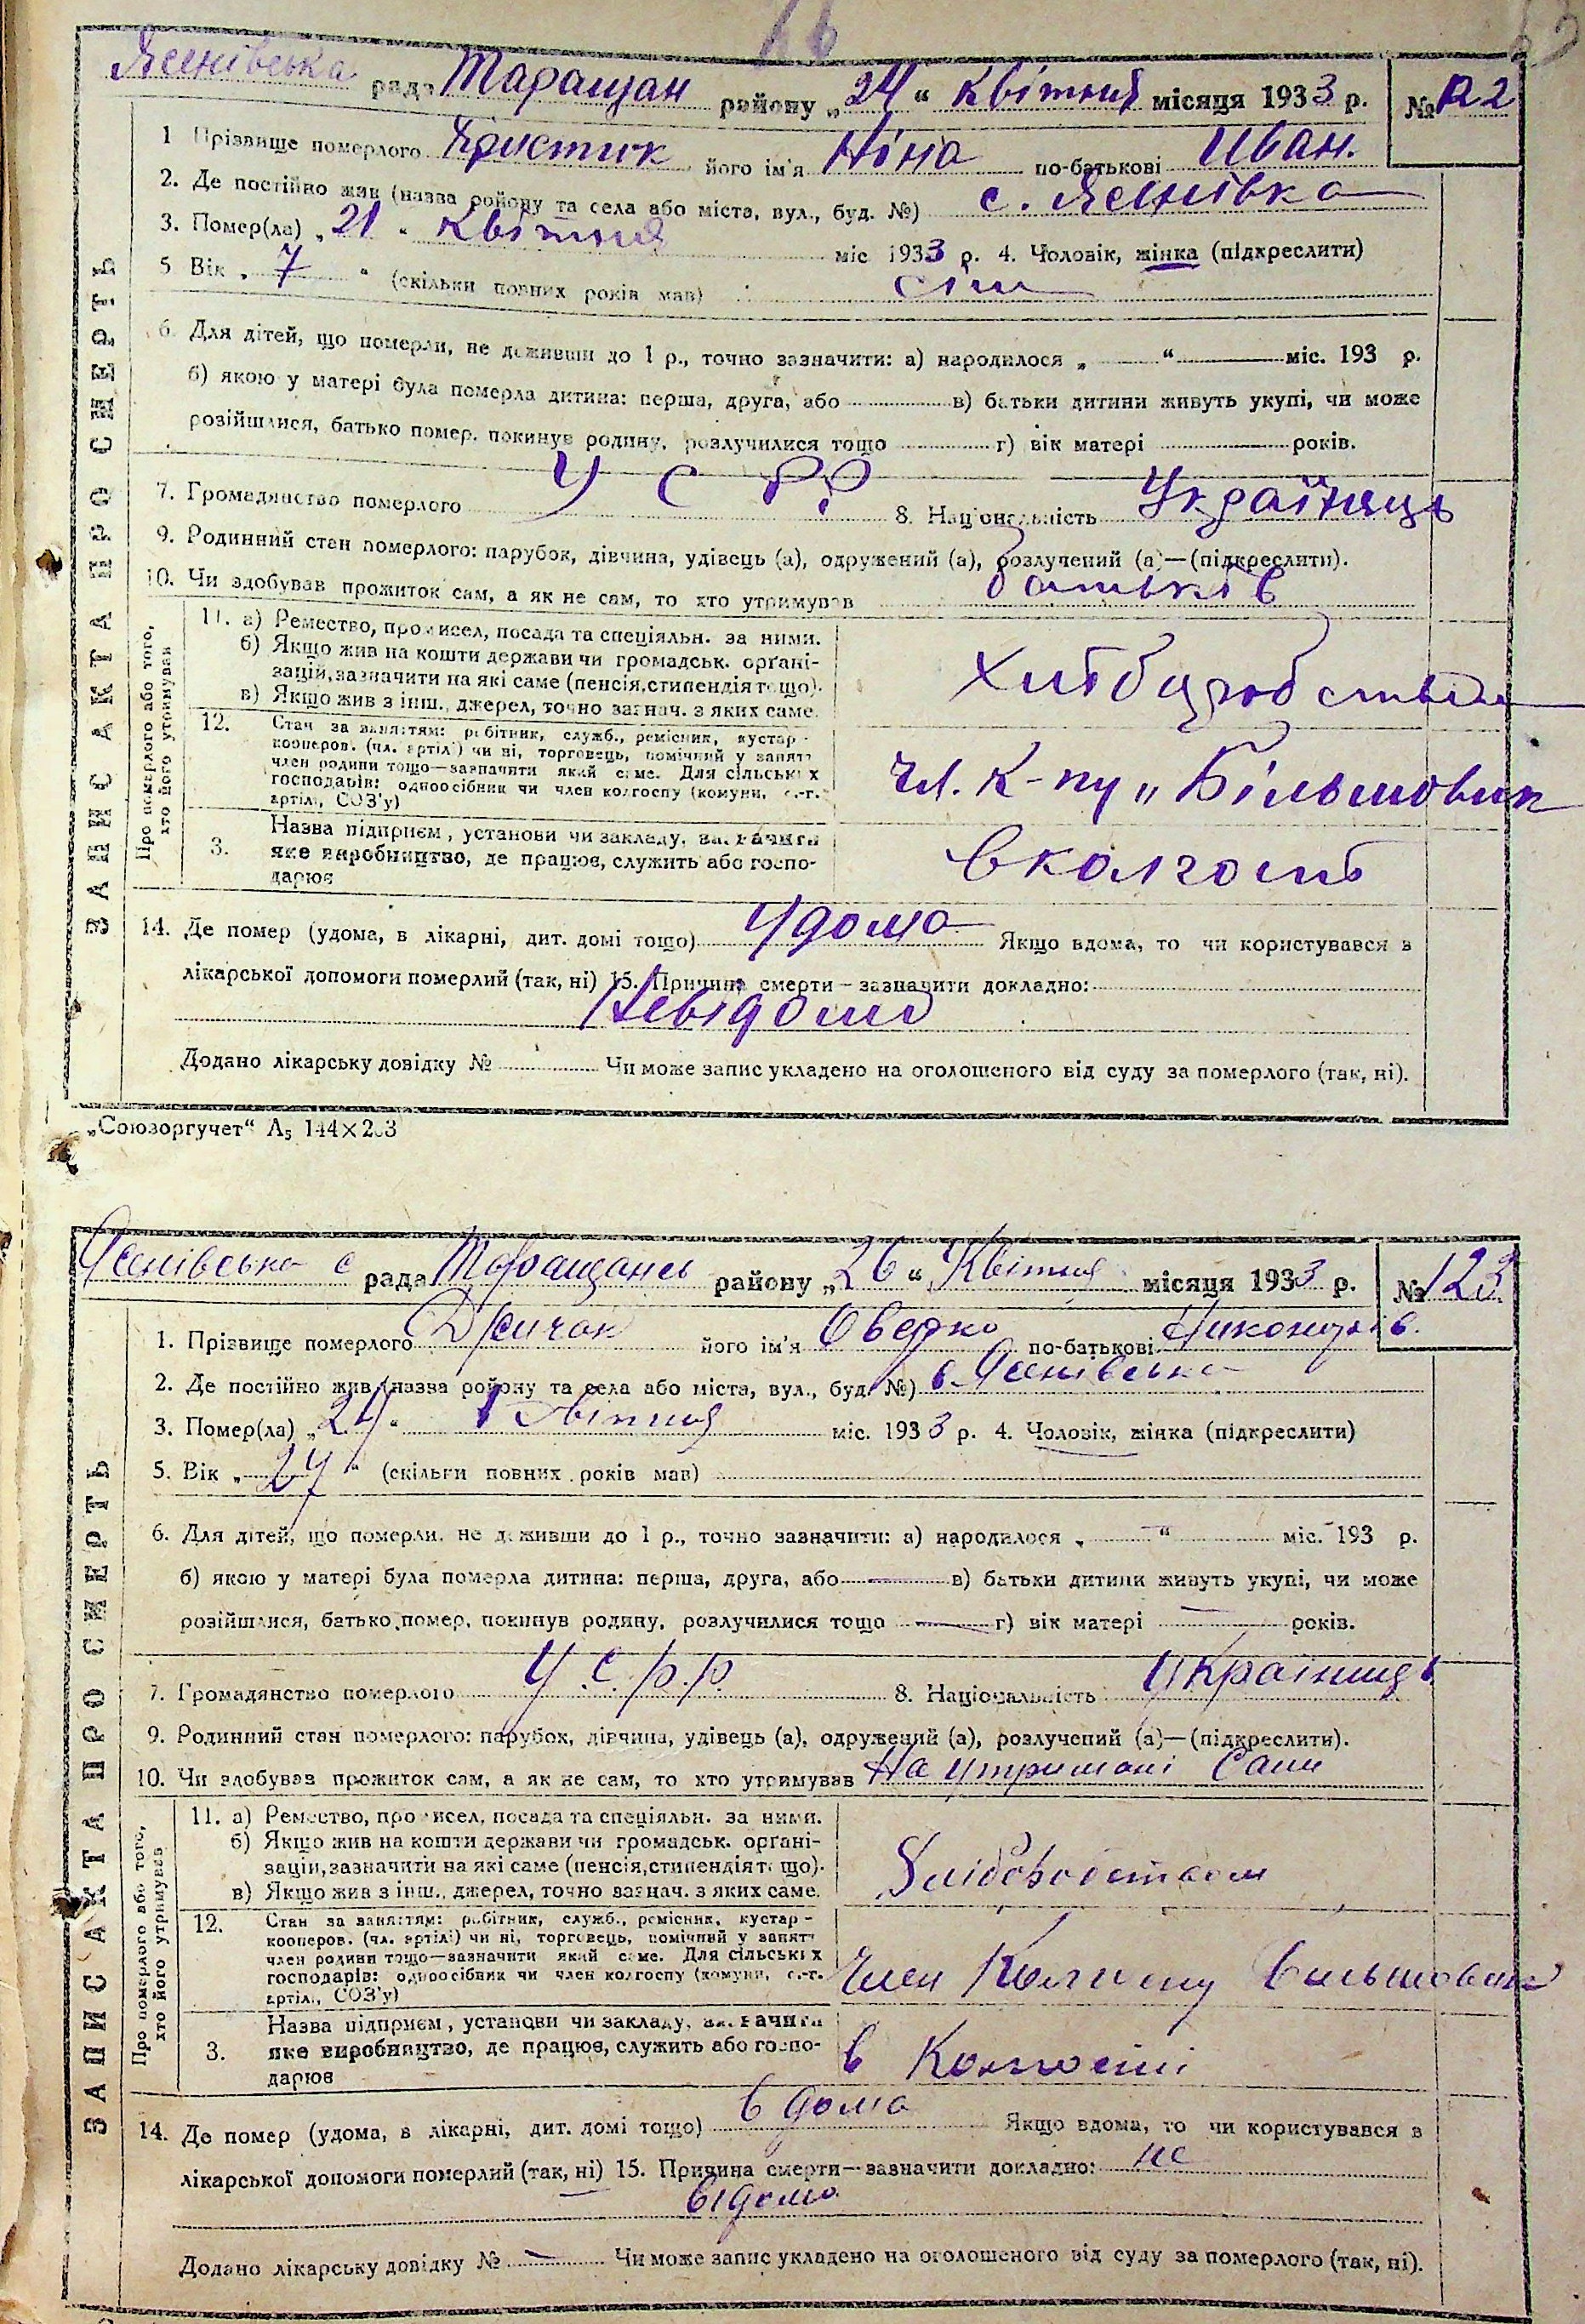 66
Ясенівська рада Таращан району „24“ Квітня місяця 1933 р. №
1 Прізвище померлого його ім'я Ніна по-батькові Иван.
2. Де постійно жив (назва району та села або міста, вул., буд. №) с. Ясенівка
3. Помер(ла) „21“ Квітня міс 1933 р. 4. Чоловік, жінка (підкреслити)
5 Вік „7“ (скільки повних років мав) сім
6. Для дітей, що померли, не доживши до 1 р., точно зазначити: а) народилося „ “ міс. 193 р.
б) якою у матері була померла дитина: перша, друга, або в) батьки дитини живуть укупі, чи може
розійшлися, батько помер, покинув родину, розлучилися тощо г) вік матері років.
7. Громадянство померлого У С Р Р 8. Національність Українець
9. Родинний стан померлого: парубок, дівчина, удівець (а), одружений (а), розлучений (а)—(підкреслити).
10. Чи здобував прожиток сам, а як не сам, то хто утримував батьків
11. а) Ремество, промисел, посада та спеціяльн. за ними.
б) Якщо жив на кошти держави чи громадськ. органі-
зацій, зазначити на які саме (пенсія, стипендія тощо).
в) Якщо жив з інш., джерел, точно зазнач. з яких саме.
12. Стан за заняттям: робітник, служб., ремісник, кустар-
кооперов. (чл. артілі) чи ні, торговець, помічний у занятт
член родини тощо—зазначити який саме. Для сільських
господарів: одноосібник чи член колгоспу (комуни, с.-г.
артілі, СОЗ'у)
чл. к-пу „Більшовик
Назва підприєм, установи чи закладу, зазначити
3. яке виробництво, де працює, служить або госпо-
дарює
В колгоспі
14. Де помер (удома, в лікарні, дит. домі тощо) Удома Якщо вдома, то чи користувався з
лікарської допомоги померлий (так, ні) 15. Причина смерти—зазначити докладно:
Невідомо
Додано лікарську довідку № Чи може запис укладено на оголошеного від суду за померлого (так, ні).
ЗАПИС АКТА ПРО СМЕРТЬ
Про померлого або того,
хто його утримував
„Союзоргучет“ А5 144×203
Ясенівська с рада Таращансь району „26“ Квітня місяця 1933 р. № 123
1. Прізвище померлого його ім'я Оверко по-батькові
2. Де постійно жив (назва району та села або міста, вул., буд. №) с. Ясенівська
3. Помер(ла) „24“ Квітня міс. 1933 р. 4. Чоловік, жінка (підкреслити)
5. Вік „27“ (скільки повних років мав)
6. Для дітей, що померли, не доживши до 1 р., точно зазначити: а) народилося „ “ міс. 193 р.
б) якою у матері була померла дитина: перша, друга, або в) батьки дитини живуть укупі, чи може
розійшлися, батько помер, покинув родину, розлучилися тощо г) вік матері років.
7. Громадянство померлого У.С.р.р. 8. Національність
9. Родинний стан померлого: парубок, дівчина, удівець (а), одружений (а), розлучений (а)—(підкреслити).
10. Чи здобував прожиток сам, а як не сам, то хто утримував На утримані
11. а) Ремество, промисел, посада та спеціяльн. за ними.
б) Якщо жив на кошти держави чи громадськ. органі-
зацій, зазначити на які саме (пенсія, стипендія тощо).
в) Якщо жив з інш., джерел, точно зазнач. з яких саме.
Хліборобством
12. Стан за заняттям: робітник, служб., ремісник, кустар-
кооперов. (чл. артілі) чи ні, торговець, помічний у занятт
член родини тощо—зазначити який саме. Для сільських
господарів: одноосібник чи член колгоспу (комуни, с.-г.
артілі, СОЗ'у)
Член Колгоспу Більшовик
Назва підприєм, установи чи закладу, зазначити
3. яке виробництво, де працює, служить або госпо-
дарює
в Колгоспі
14. Де помер (удома, в лікарні, дит. домі тощо) в дома Якщо вдома, то чи користувався з
лікарської допомоги померлий (так, ні) 15. Причина смерти—зазначити докладно: не
відомо
Додано лікарську довідку № — Чи може запис укладено на оголошеного від суду за померлого (так, ні).
ЗАПИС АКТА ПРО СМЕРТЬ
Про померлого або того,
хто його утримував